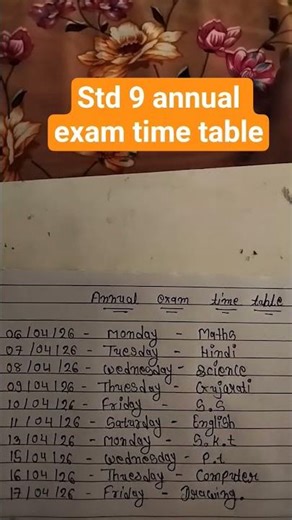 Std 9 annual
exam time table
Annual exam time table
06/04/26 - Monday - Maths
07/04/26 - Tuesday - Hindi
08/04/26 - Wednesday - Science
09/04/26 - Thuesday - Gujarati
10/04/26 - Friday - S.S
11/04/26 - Saturday - English
13/04/26 - Monday - S.k.t
15/04/26 - Wednesday - P.t
16/04/26 - Thuesday - Computer
17/04/26 - Friday - Drawing.